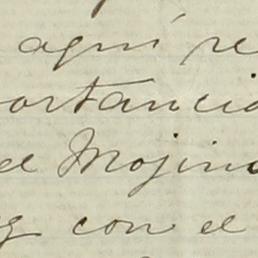 aquí re
ortancia
el Mojin
y con el